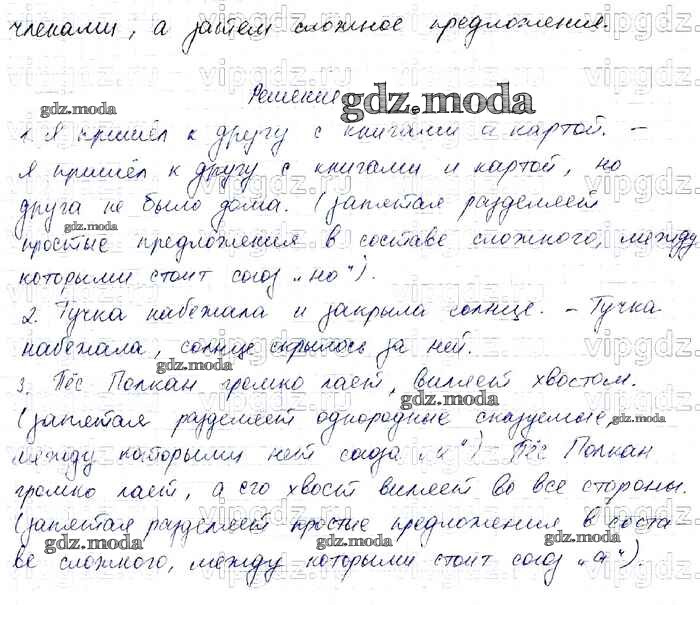 членами, а затем сложное предложения.
Решение
1. Я пришёл к другу с книгами и картой. –
Я пришёл к другу с книгами и картой, но
друга не было дома. (запятая разделяет
простые предложения в составе сложного, между
которыми стоит союз „но“).
2. Тучка набежала и закрыла солнце. – Тучка
набежала, солнце скрылось за ней.
3. Пёс Полкан громко лает, виляет хвостом.
(запятая разделяет однородные сказуемые,
между которыми нет союза „и“) – Пёс Полкан
громко лает, а его хвост виляет во все стороны.
(запятая разделяет простые предложения в соста
ве сложного, между которыми стоит союз „а“).
gdz.moda
vipgdz.ru